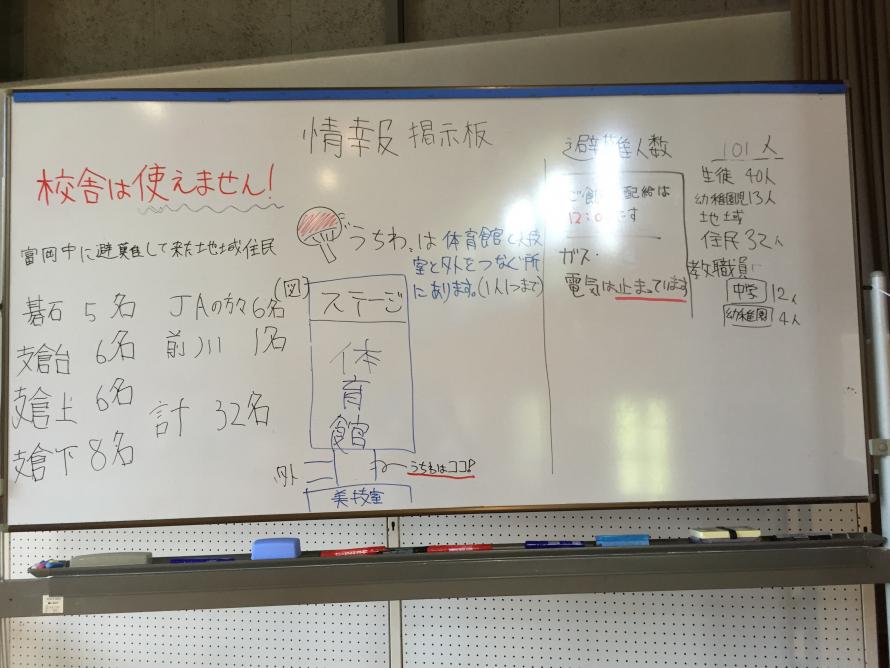 情報 掲示板
校舎は使えません!
富岡中に避難して来た地域住民
碁石 5名
支倉台 6名
支倉上 6名
支倉下 8名
JAの方々 6名
前川 1名
計 32名
うちわは体育館と美技
室と外をつなぐ所
にあります。(1人1つまで)
(図)
ステージ
体育館
外
うちわはココ!
美技室
避難人数
ご飯 配給は
12:0 です
ガス・
電気は止まっています
101人
生徒 40人
幼稚園児13人
地域
住民32人
教職員
中学 12人
幼稚園 4人